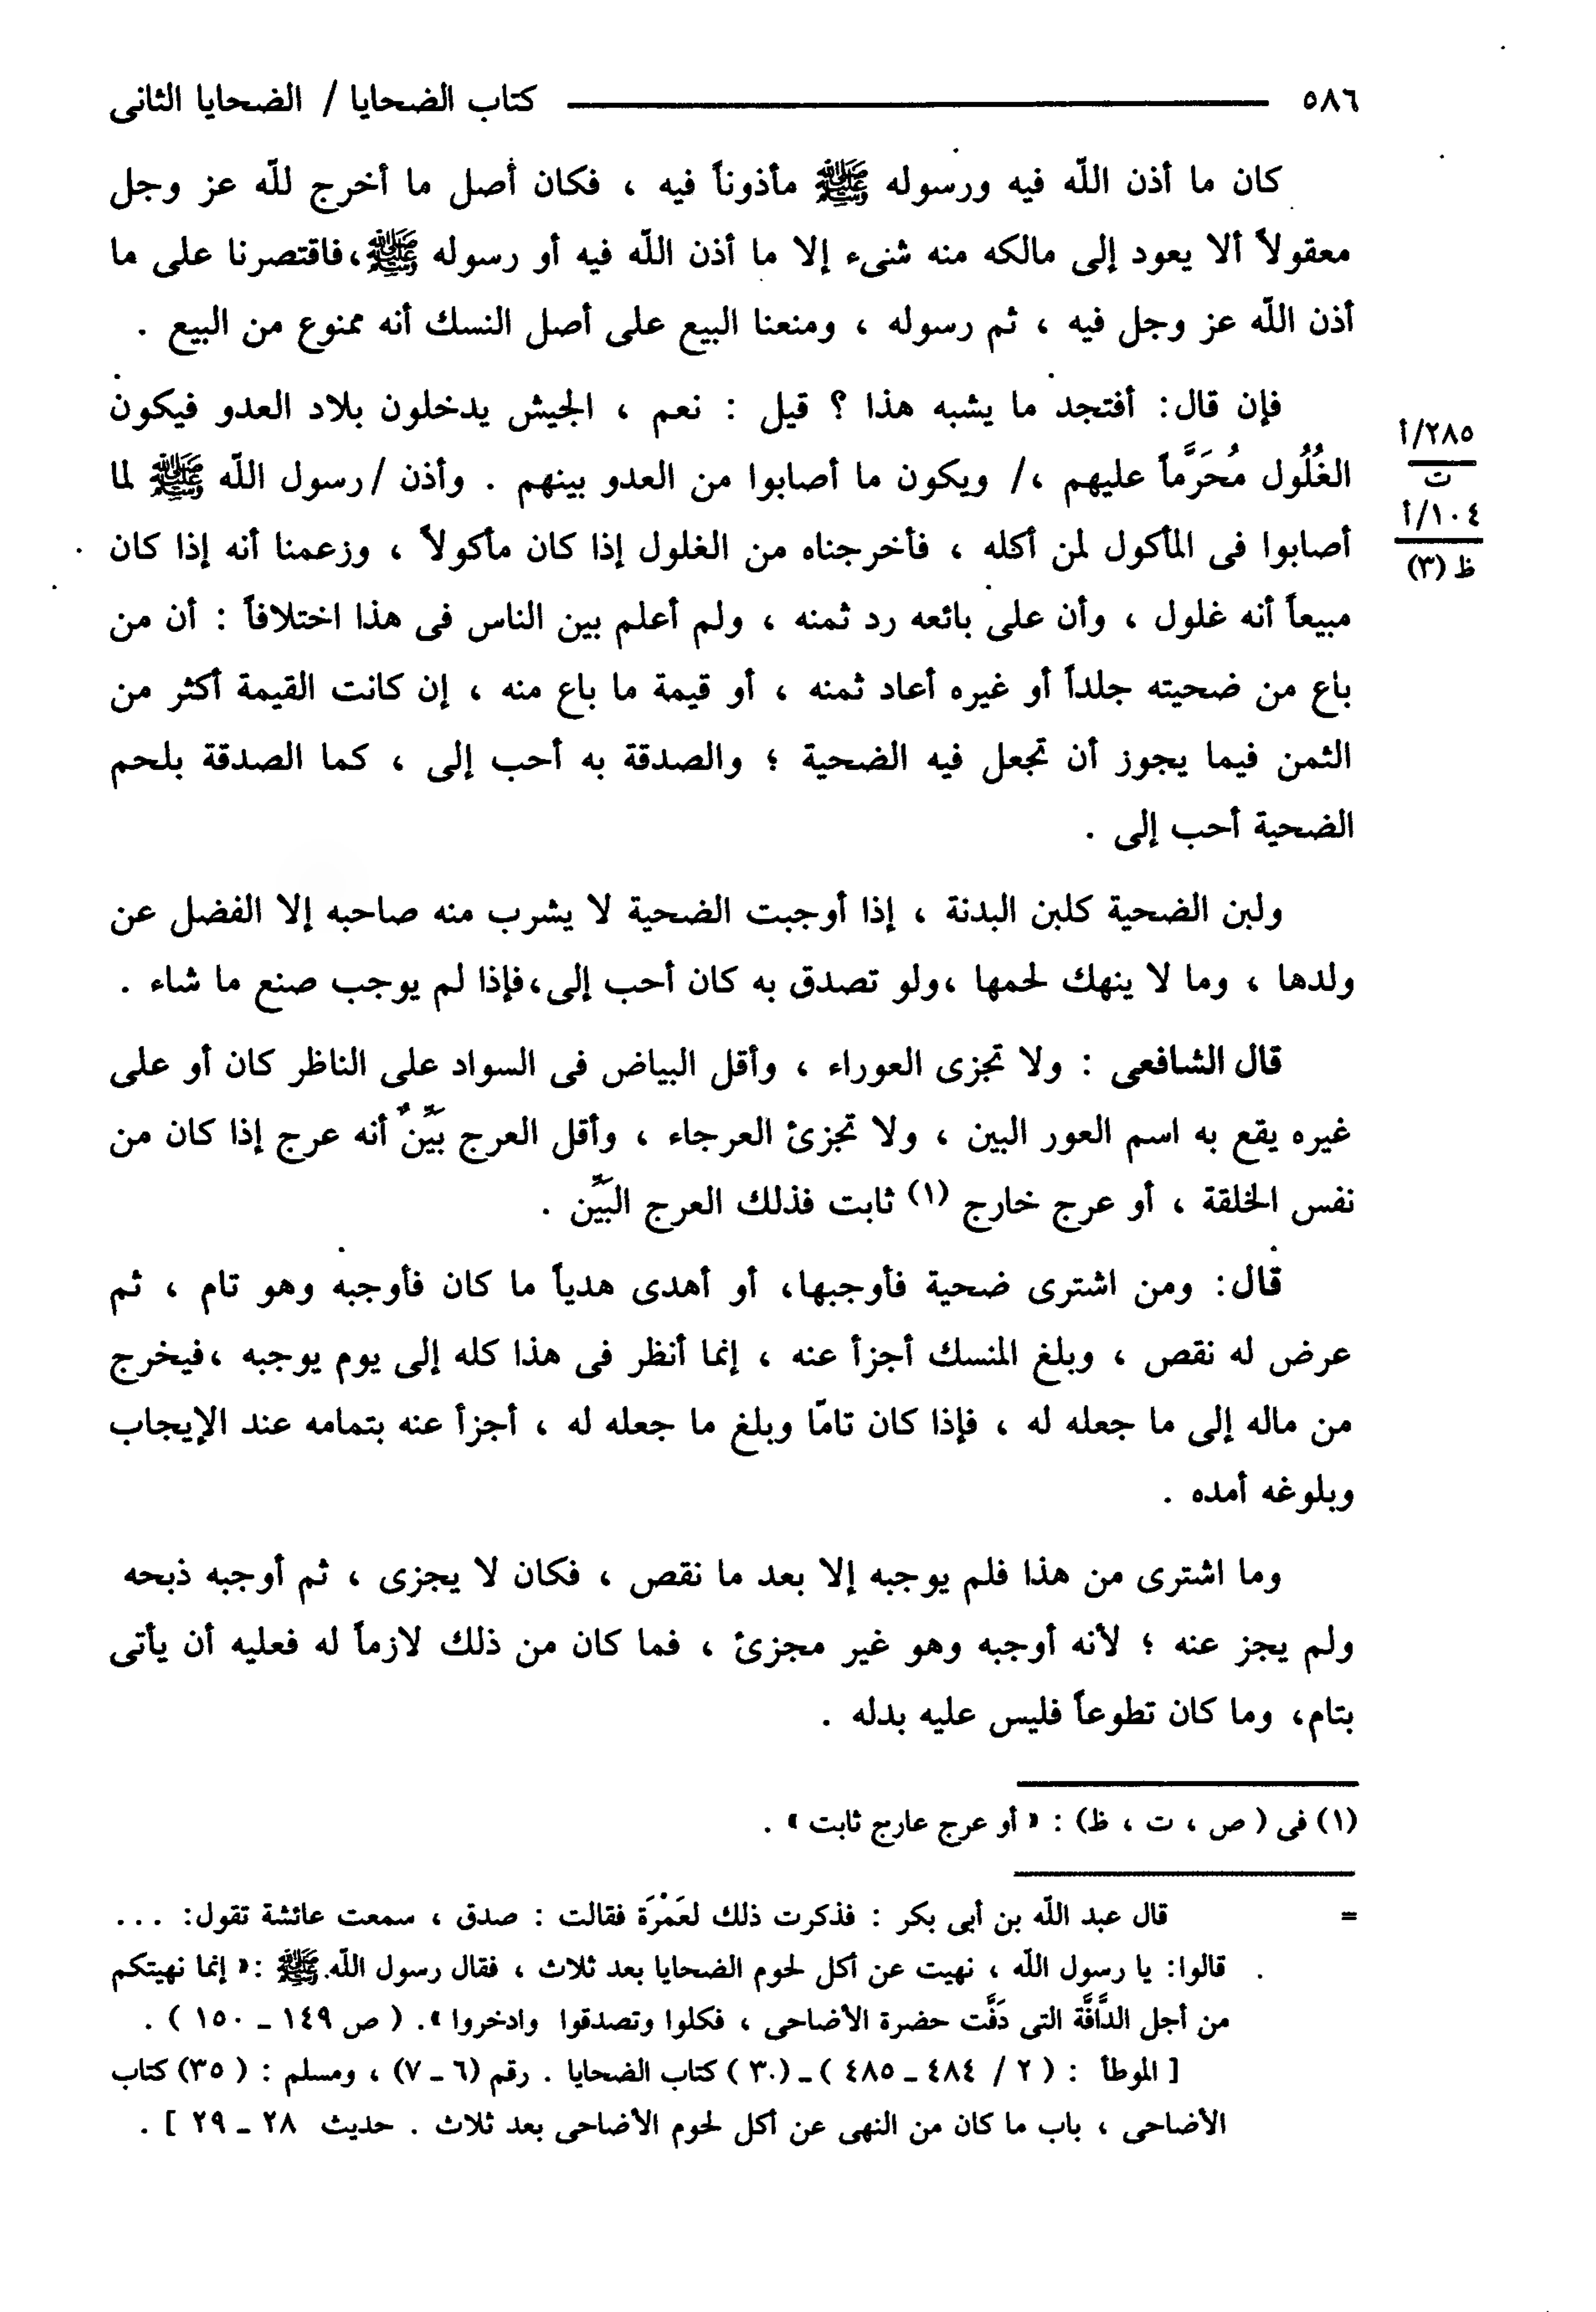 ٥٨٦ ــــــــــــ كتاب الضحايا / الضحايا الثانى
كان ما أذن اللّه فيه ورسوله ﷺ مأذوناً فيه ، فكان أصل ما أخرج للّه عز وجل
معقولاً ألا يعود إلى مالكه منه شىء إلا ما أذن اللّه فيه أو رسوله ﷺ،فاقتصرنا على ما
أذن اللّه عز وجل فيه ، ثم رسوله ، ومنعنا البيع على أصل النسك أنه ممنوع من البيع .
فإن قال: أفتجد ما يشبه هذا ؟ قيل : نعم ، الجيش يدخلون بلاد العدو فيكون
الغُلُول مُحَرَّماً عليهم ،/ ويكون ما أصابوا من العدو بينهم . وأذن /رسول اللّه ﷺ لما
أصابوا فى المأكول لمن أكله ، فأخرجناه من الغلول إذا كان مأكولاً ، وزعمنا أنه إذا كان
مبيعاً أنه غلول ، وأن على بائعه رد ثمنه ، ولم أعلم بين الناس فى هذا اختلافاً : أن من
باع من ضحيته جلداً أو غيره أعاد ثمنه ، أو قيمة ما باع منه ، إن كانت القيمة أكثر من
الثمن فيما يجوز أن تجعل فيه الضحية ؛ والصدقة به أحب إلى ، كما الصدقة بلحم
الضحية أحب إلى .
٢٨٥/أ
ت
١٠٤/أ
ظ (٣)
ولبن الضحية كلبن البدنة ، إذا أوجبت الضحية لا يشرب منه صاحبه إلا الفضل عن
ولدها ، وما لا ينهك لحمها ،ولو تصدق به كان أحب إلى،فإذا لم يوجب صنع ما شاء .
قال الشافعى : ولا تجزى العوراء ، وأقل البياض فى السواد على الناظر كان أو على
غيره يقع به اسم العور البين ، ولا تجزئ العرجاء ، وأقل العرج بَيِّنٌ أنه عرج إذا كان من
نفس الخلقة ، أو عرج خارج (١) ثابت فذلك العرج البَيِّن .
قال: ومن اشترى ضحية فأوجبها، أو أهدى هدياً ما كان فأوجبه وهو تام ، ثم
عرض له نقص ، وبلغ المنسك أجزأ عنه ، إنما أنظر فى هذا كله إلى يوم يوجبه ،فيخرج
من ماله إلى ما جعله له ، فإذا كان تامّا وبلغ ما جعله له ، أجزأ عنه بتمامه عند الإيجاب
وبلوغه أمده .
وما اشترى من هذا فلم يوجبه إلا بعد ما نقص ، فكان لا يجزى ، ثم أوجبه ذبحه
ولم يجز عنه ؛ لأنه أوجبه وهو غير مجزئ ، فما كان من ذلك لازماً له فعليه أن يأتى
بتام، وما كان تطوعاً فليس عليه بدله .
(١) فى ( ص ، ت ، ظ) : « أو عرج عارج ثابت » .
= قال عبد اللّه بن أبى بكر : فذكرت ذلك لعَمْرَة فقالت : صدق ، سمعت عائشة تقول: ...
قالوا: يا رسول اللّه ، نهيت عن أكل لحوم الضحايا بعد ثلاث ، فقال رسول اللّه ﷺ :« إنما نهيتكم
من أجل الدَّافَّة التى دَفَّت حضرة الأضاحى ، فكلوا وتصدقوا وادخروا ». ( ص ١٤٩ ـ ١٥٠ ) .
[ الموطأ : ( ٢ / ٤٨٤ ـ ٤٨٥ ) ـ (٣٠ ) كتاب الضحايا . رقم (٦ ـ ٧) ، ومسلم : ( ٣٥) كتاب
الأضاحى ، باب ما كان من النهى عن أكل لحوم الأضاحى بعد ثلاث . حديث ٢٨ ـ ٢٩ ] .